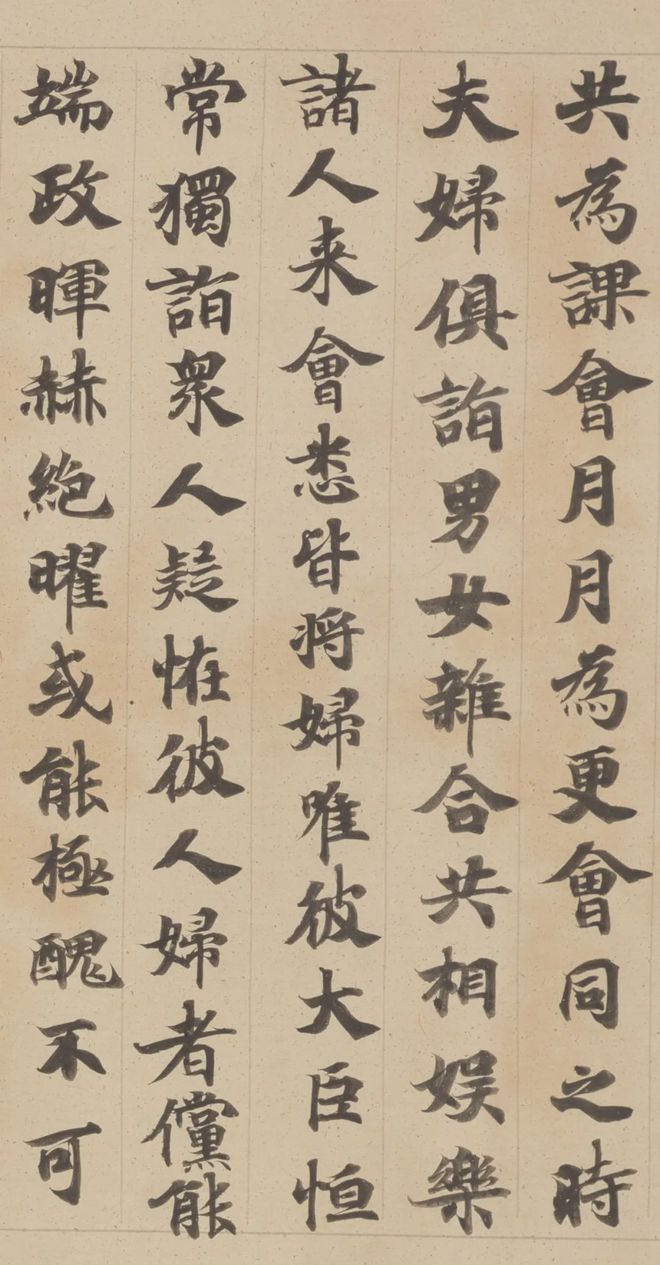 共為課會月月為更會同之時
夫婦俱詣男女雜合共相娯樂
諸人来會悉皆将婦唯彼大臣恒
常獨詣衆人疑恠彼人婦者儻能
端政暉赫絶曜或能極醜不可